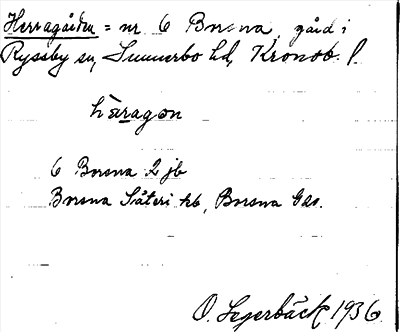 Herragården = nr 6 Borsna, gård i
Ryssby sn, Sunnerbo hd, Kronob. l.
hæ̀ragon
6 Borsna 2 jb
Borsna Säteri hb, Borsna GEK.
O. Segerbäck 1936